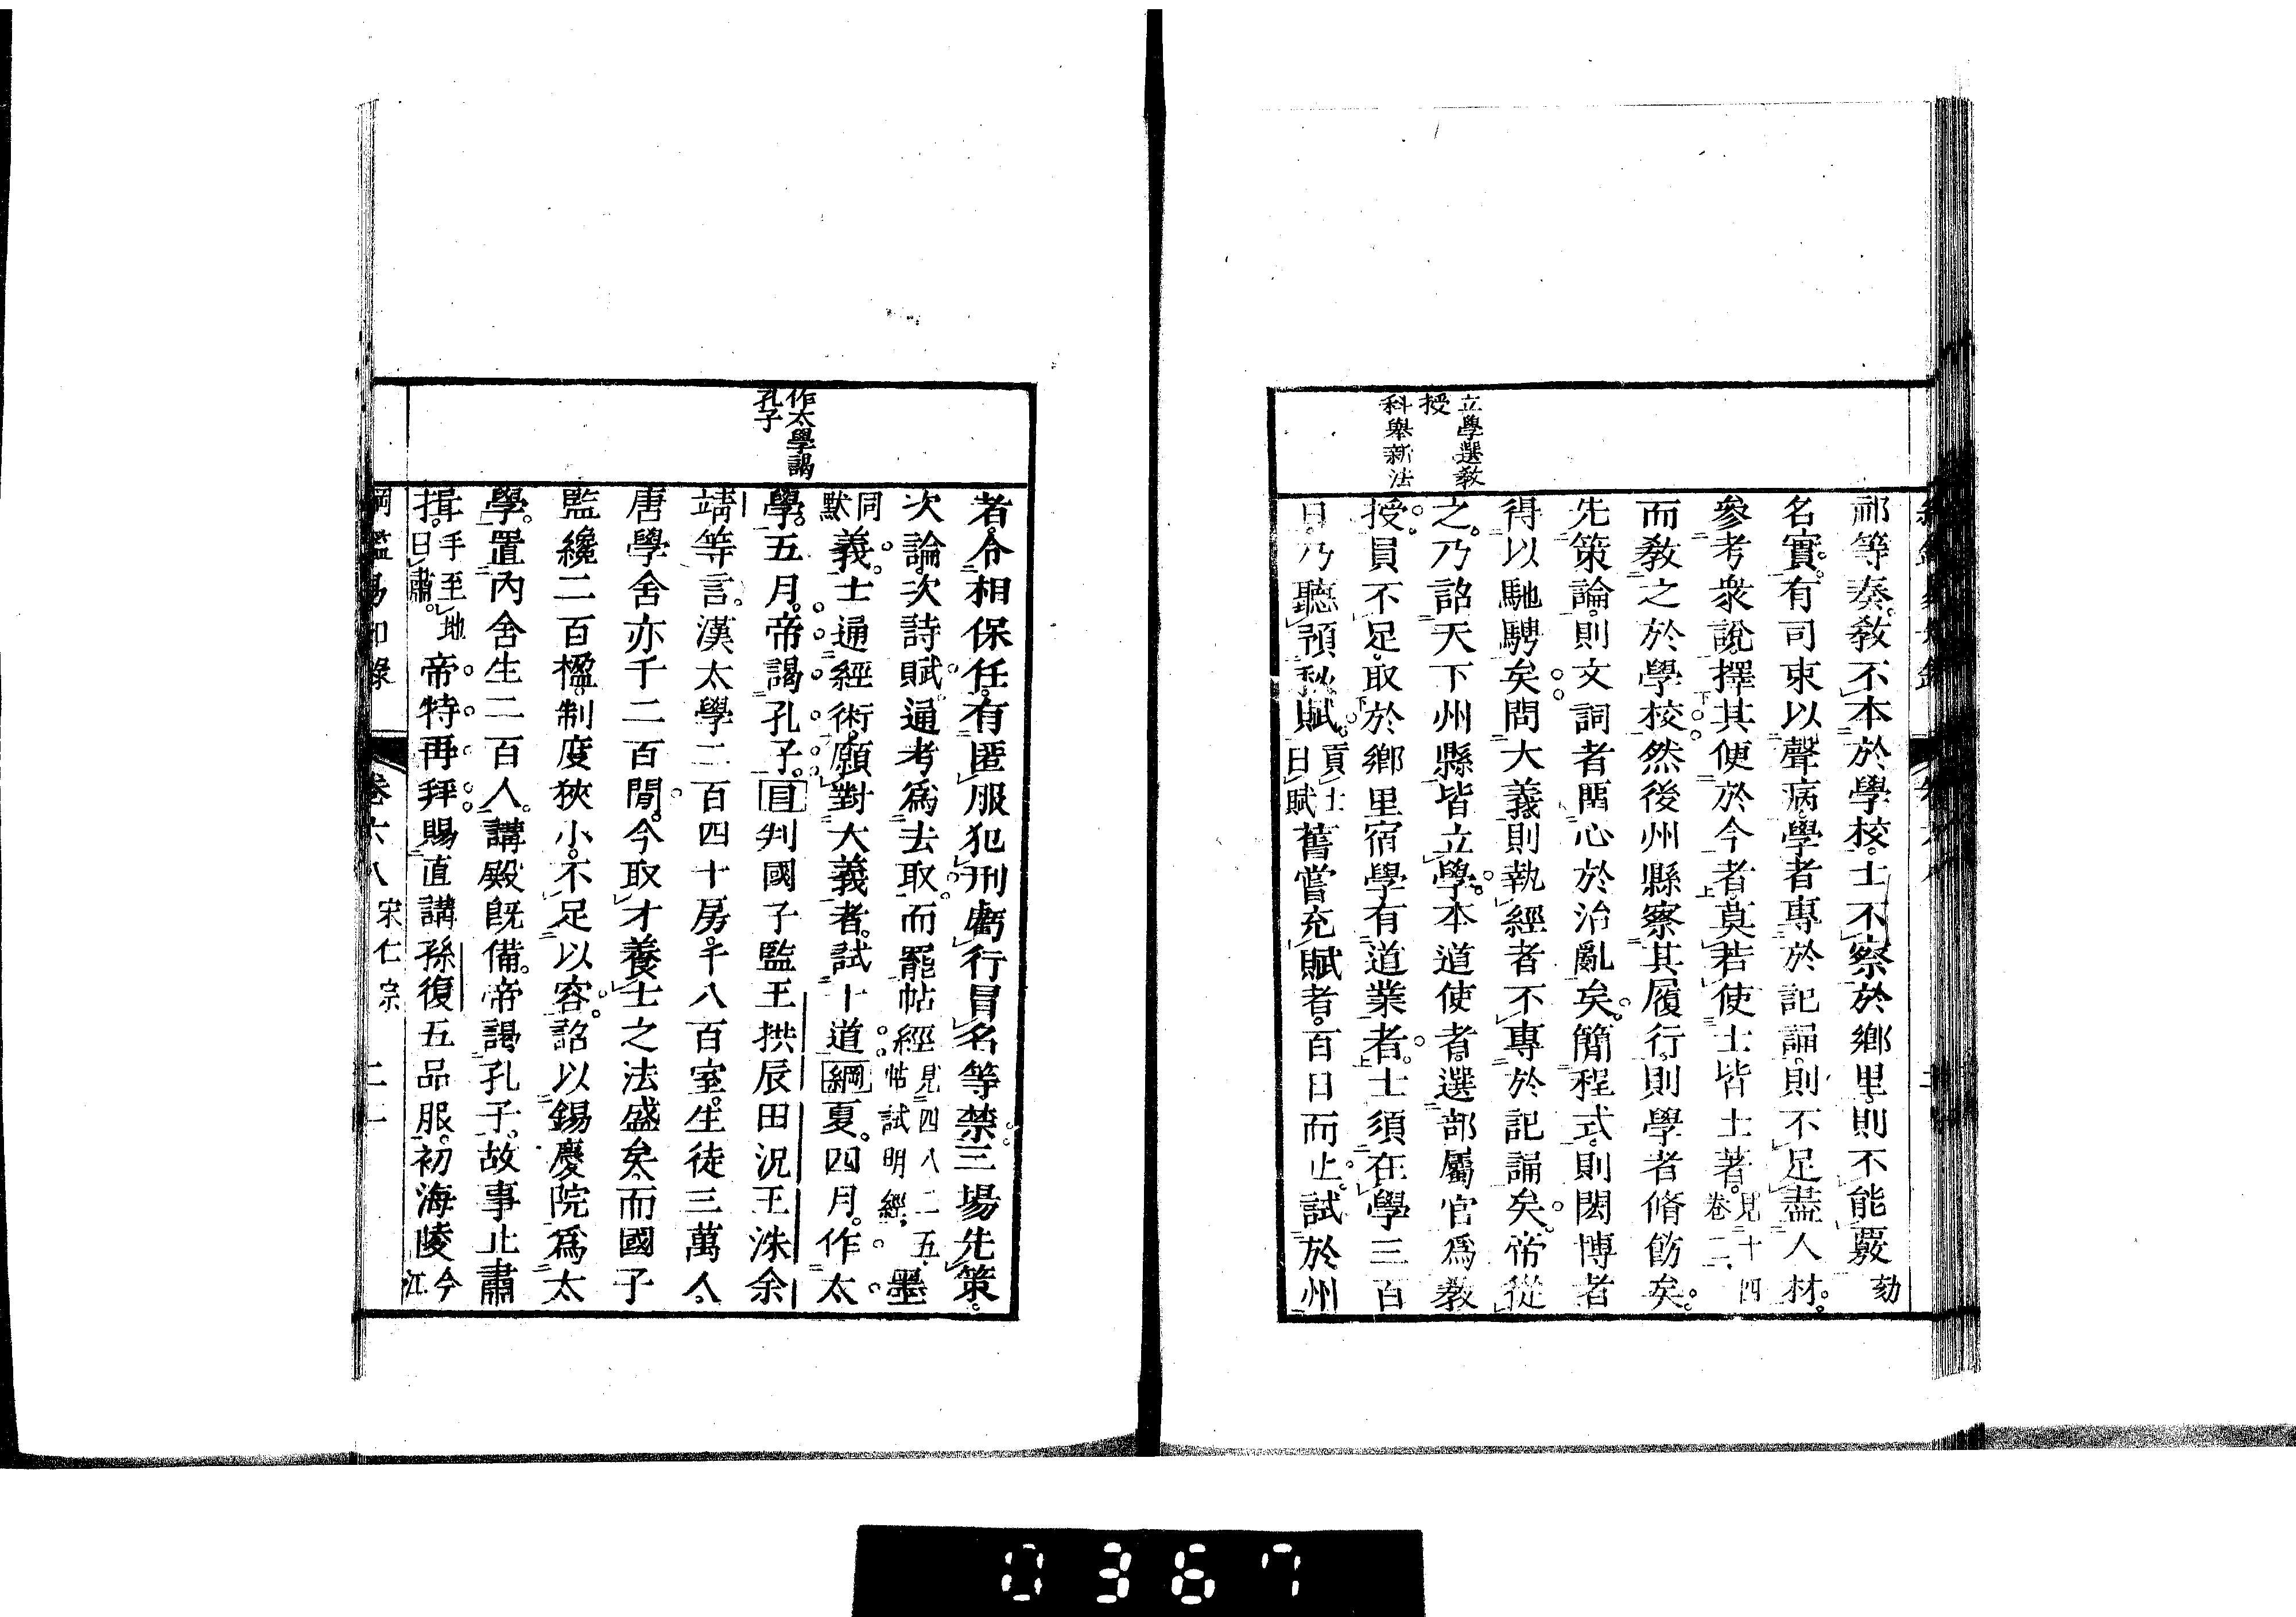 立學選教
授
科舉新法
祁等奏。教不本於學校。士不察於鄉里。則不能覈劾
名實。有司束以聲病。學者專於記誦。則不足盡人材。
參考衆說。擇其便於今者。莫若使士皆土著。見十四卷二、
而教之於學校。然後州縣察其履行。則學者脩飭矣。
先策論。則文詞者畱心於治亂矣。簡程式。則閎博者
得以馳騁矣。問大義。則執經者不專於記誦矣。帝從
之。乃詔天下州縣皆立學。本道使者。選部屬官爲教
授。員不足。取於鄉里宿學有道業者。士須在學三百
日。乃聽預秋賦。貢士曰賦舊嘗充賦者。百日而止。試於州
作太學謁
孔子
者。令相保任。有匿服犯刑虧行冒名等禁。三場先策。
次論。次詩賦。通考爲去取。而罷帖經見四八二五、帖試明經、墨
同默義。士通經術。願對大義者。試十道綱夏。四月。作太
學。五月。帝謁孔子。目判國子監王拱辰田況王洙余
靖等言。漢太學二百四十房。千八百室。生徒三萬人。
唐學舍亦千二百閒。今取才養士之法盛矣。而國子
監纔二百楹。制度狹小。不足以容。詔以錫慶院爲太
學。置內舍生二百人。講殿旣備。帝謁孔子。故事止肅
揖。手至地曰肅。帝特再拜。賜直講孫復五品服。初海陵今江
綱鑑易知錄 卷六八 宋仁宗 二一
0367